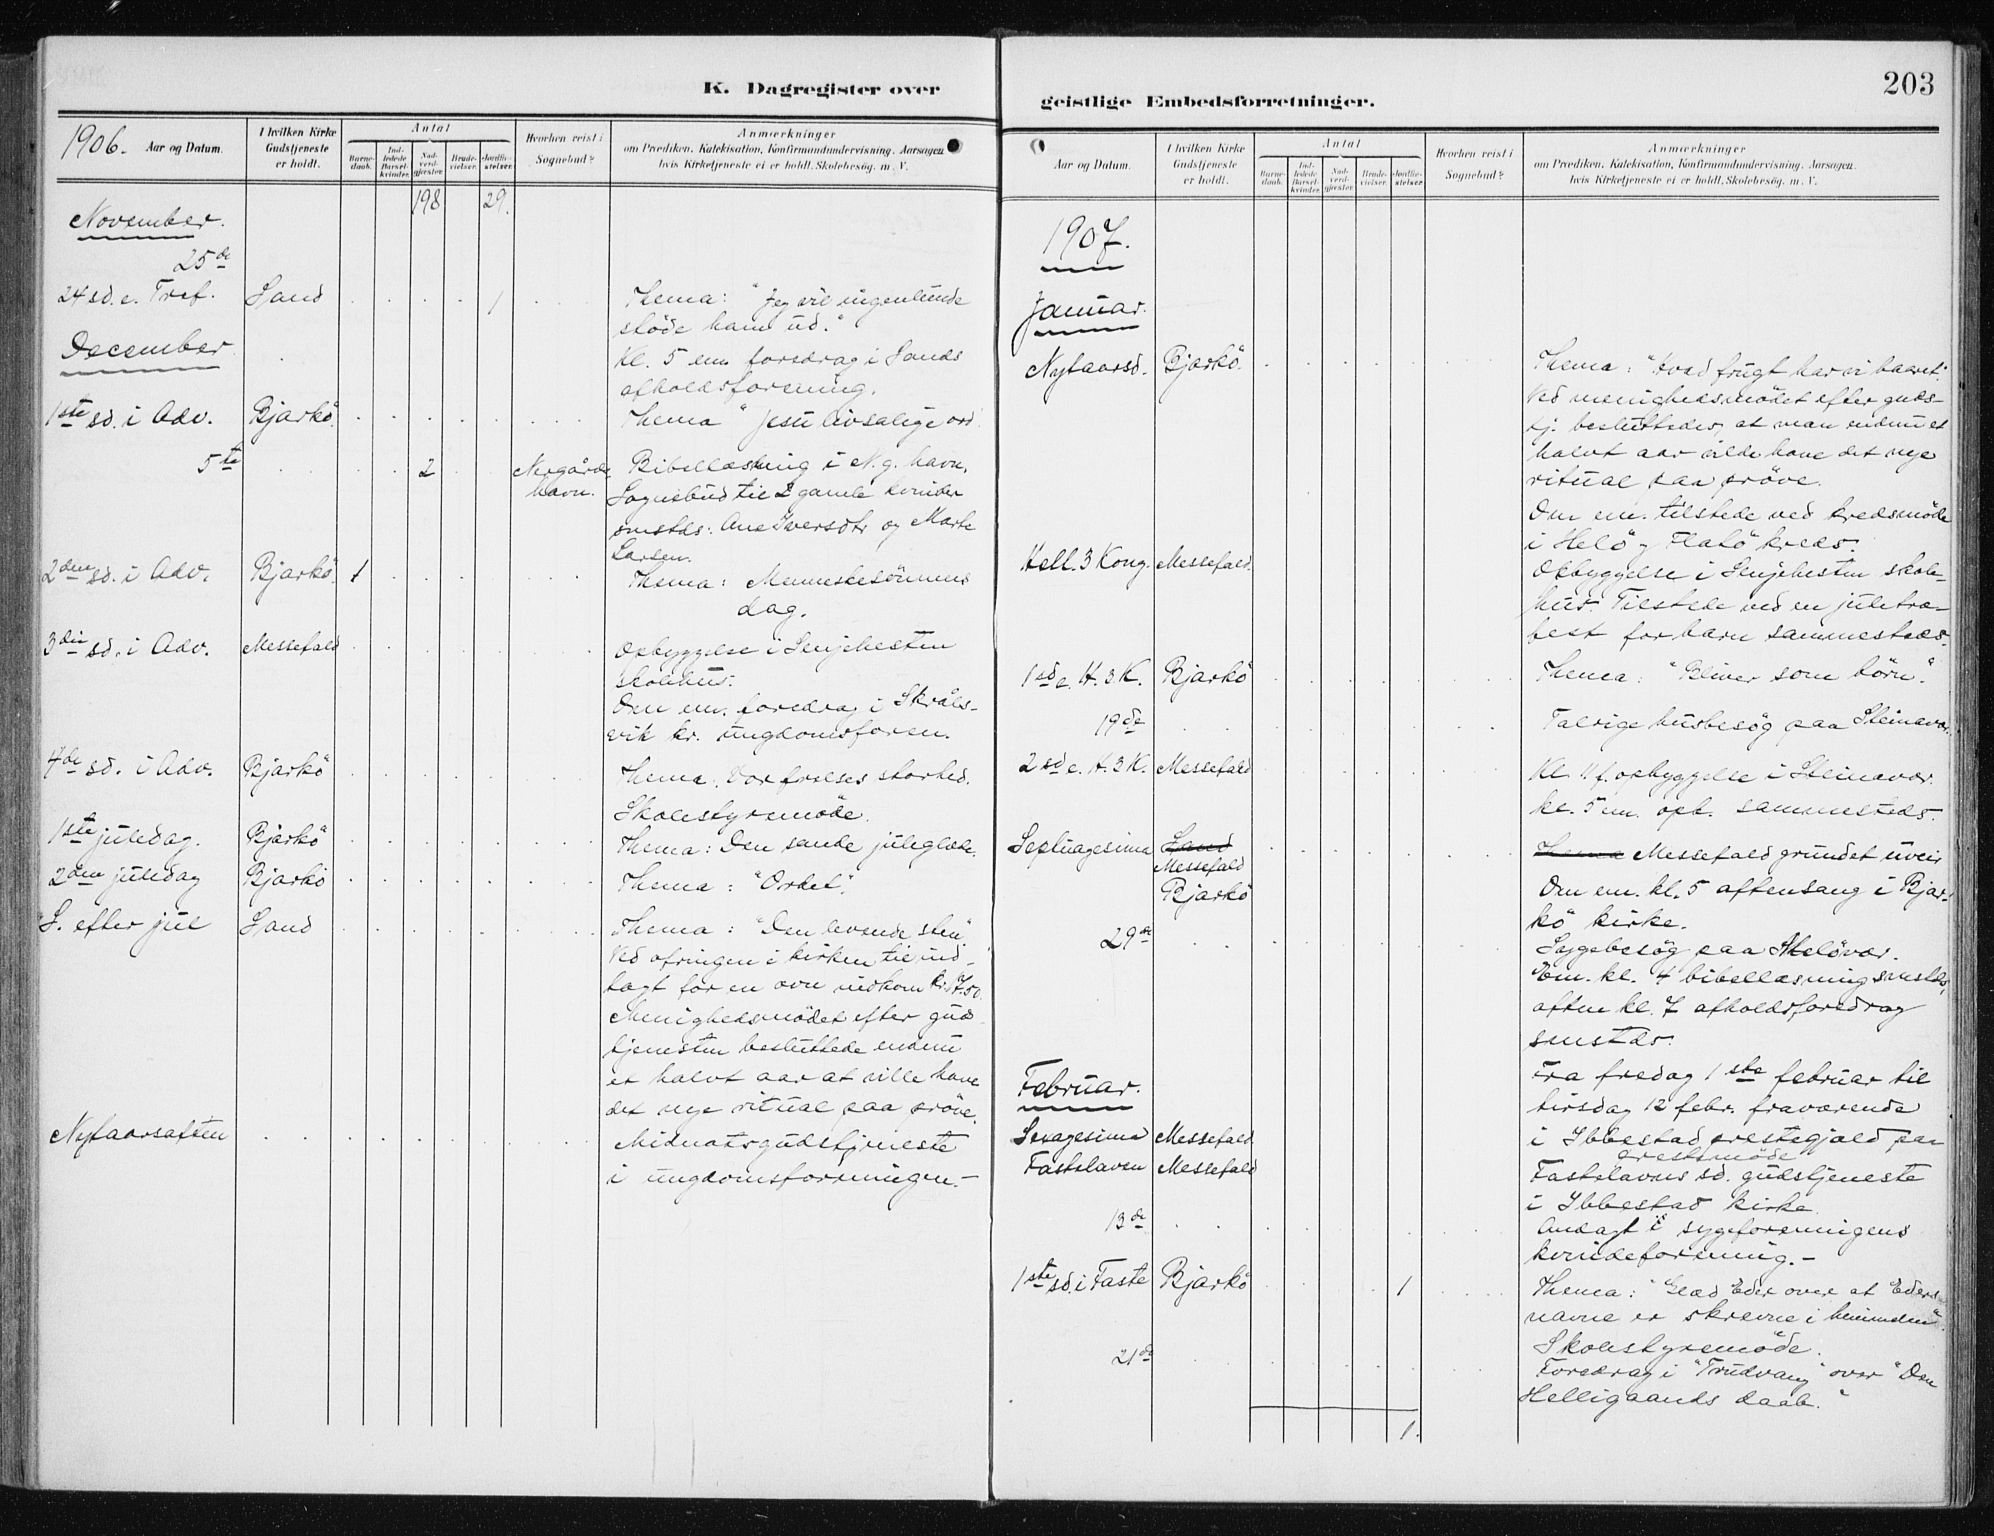 K. Dagregister over
1906. Aar og Datum.
I hvilken Kirke Gudstjeneste er holdt.
Antal
Barne-daab.
Ind-ledede Barsel-kvinder.
Nad-verd-gjæster.
Brude-vielser.
Jordfæ-stelser.
Hvorhen reist i Sognebud?
Anmærkninger
om Prædiken, Katekisation, Konfirmandundervisning, Aarsagen
hvis Kirketjeneste ei er holdt, Skolebesøg, m. V.
198 29.
November.
25de
24 sd. e. Tref. Sand 1 Thema: "Jeg vil ingenlunde
støde ham ud."
December
Kl. 5 em. foredrag i Sands
afholdsforening.
1ste sd. i Adv. Bjarkö. Thema "Jesu livsalige ord.
5te 2 Nergårds havn. Bibellæsning i N.g. havn,
Sognebud til 2 gamle kvinder
smstds: Ane Iversdtr og Marte
Larsen.
2den sd. i Adv. Bjarkö. 1 Thema: Menneskesönnens
dag.
3die sd. i Adv. Messefald Opbyggelse i Senjehesten
skolehus.
Om em. foredrag i Skråls-
vik kr. ungdomsforen.
4de sd. i Adv. Bjarkö Thema: Vor frelses storhed.
Skolestyremöde.
1ste juledag. Bjarkö Thema: Den sande juleglæde.
2den juledag Bjarkö Thema: "Ordet".
S. efter jul Sand Thema: "Den levende sten"
Ved ofringen i kirken til ind-
tægt for en ovn indkom kr. 17.50.
Menighedsmödet efter guds
tjenesten besluttede endnu
et halvt aar at ville have
det nye ritual paa pröve.
Nytaarsaften Midnatsgudstjeneste
i ungdomsforeningen.-
geistlige Embedsforretninger.
203
Aar og Datum.
I hvilken Kirke Gudstjeneste er holdt.
Antal
Barne-daab.
Ind-ledede Barsel-kvinder.
Nad-verd-gjæster.
Brude-vielser.
Jordfæ-stelser.
Hvorhen reist i Sognebud?
Anmærkninger
om Prædiken, Katekisation, Konfirmandundervisning, Aarsagen,
hvis Kirketjeneste ei er holdt, Skolebesøg, m. V.
1907.
Januar.
Nytaarsd. Bjarkö. Thema: "Hvad frugt har vi baaret".
Ved menighedsmödet efter guds-
tj. besluttedes, at man endnu et
halvt aar vilde have det nye
ritual paa pröve.
Om em. tilstede ved kredsmöde
i Helö og Flatö kreds.
Hell. 3 Kong. Messefald. Opbyggelse i Senjehesten skole-
hus. Tilstede ved en juletræ-
fest for barn sammesteds.
1 sd e. H. 3 K. Bjarkö Thema: "Bliver som börn."
19de Talrige husbesög paa Steinavær.
2 sd e. H. 3 K. Messefald Kl. 11 f. opbyggelse i Steinavær.
kl. 5 em. opb. sammesteds.
Septuagesima Sand Thema Messefald grundet uveir
Messefald
Bjarkö Om em. kl. 5 aftensang i Bjar-
kö kirke.
29de Sygebesög paa Meløvær.
Em. kl. 4 bibellæsning smstds,
aften kl. 7 afholdsforedrag
smstds.
Februar.
Fra fredag 1ste februar til
tirsdag 12 febr. fraværende
Sexagesima Messefald i Ibbestad prestegjæld paa
prestemöde
Fastelaven Messefald Fastelavns sd. gudstjeneste
i Ibbestad kirke.
13de Andagt i sygeforeningens
kvindeforening.-
1ste sd. i Faste Bjarkö 1 Thema: "Glæd Eder over at Eders
navne er skrevne i himmelen".
Skolestyremöde.
21de Foredrag i "Trudvang" over "Den
Helligaands daab."
1.